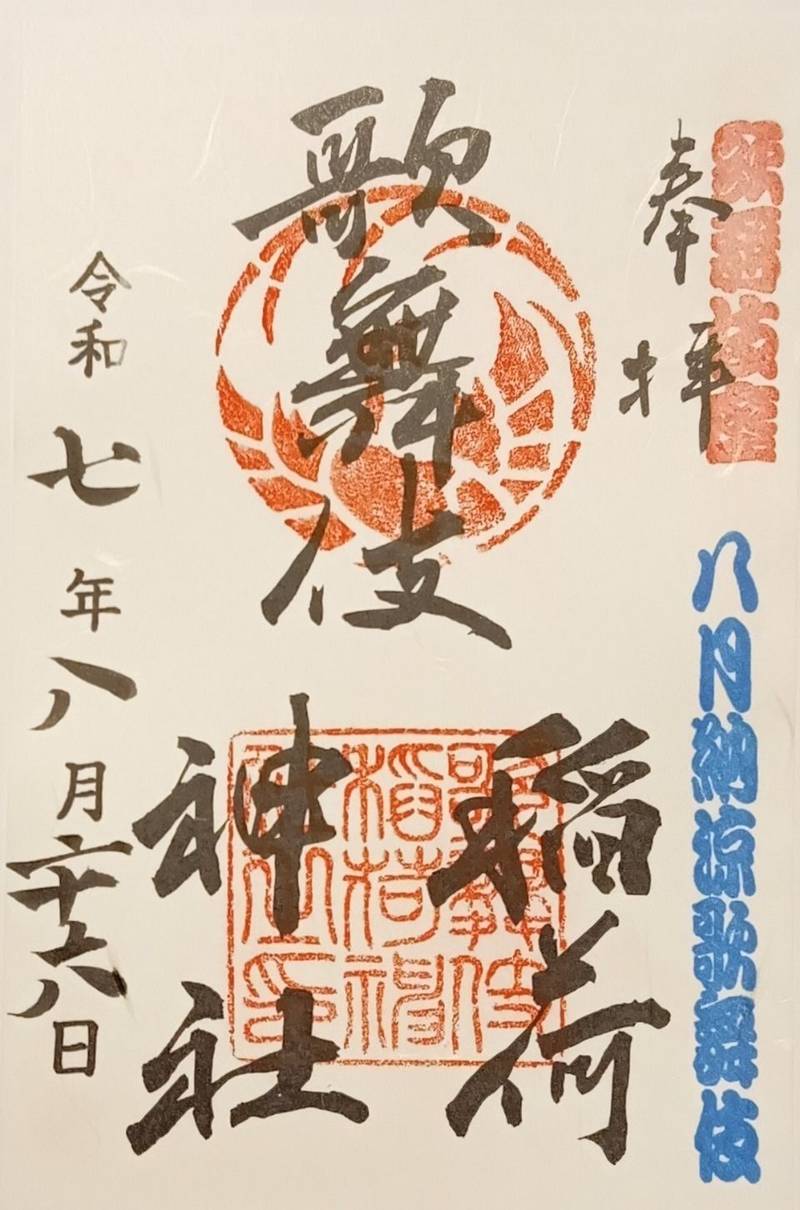 歌舞伎座
奉拝
八月納涼歌舞伎
歌舞伎
稲荷
神社
歌舞伎
稲荷神
社之印
令和七年八月二十六日